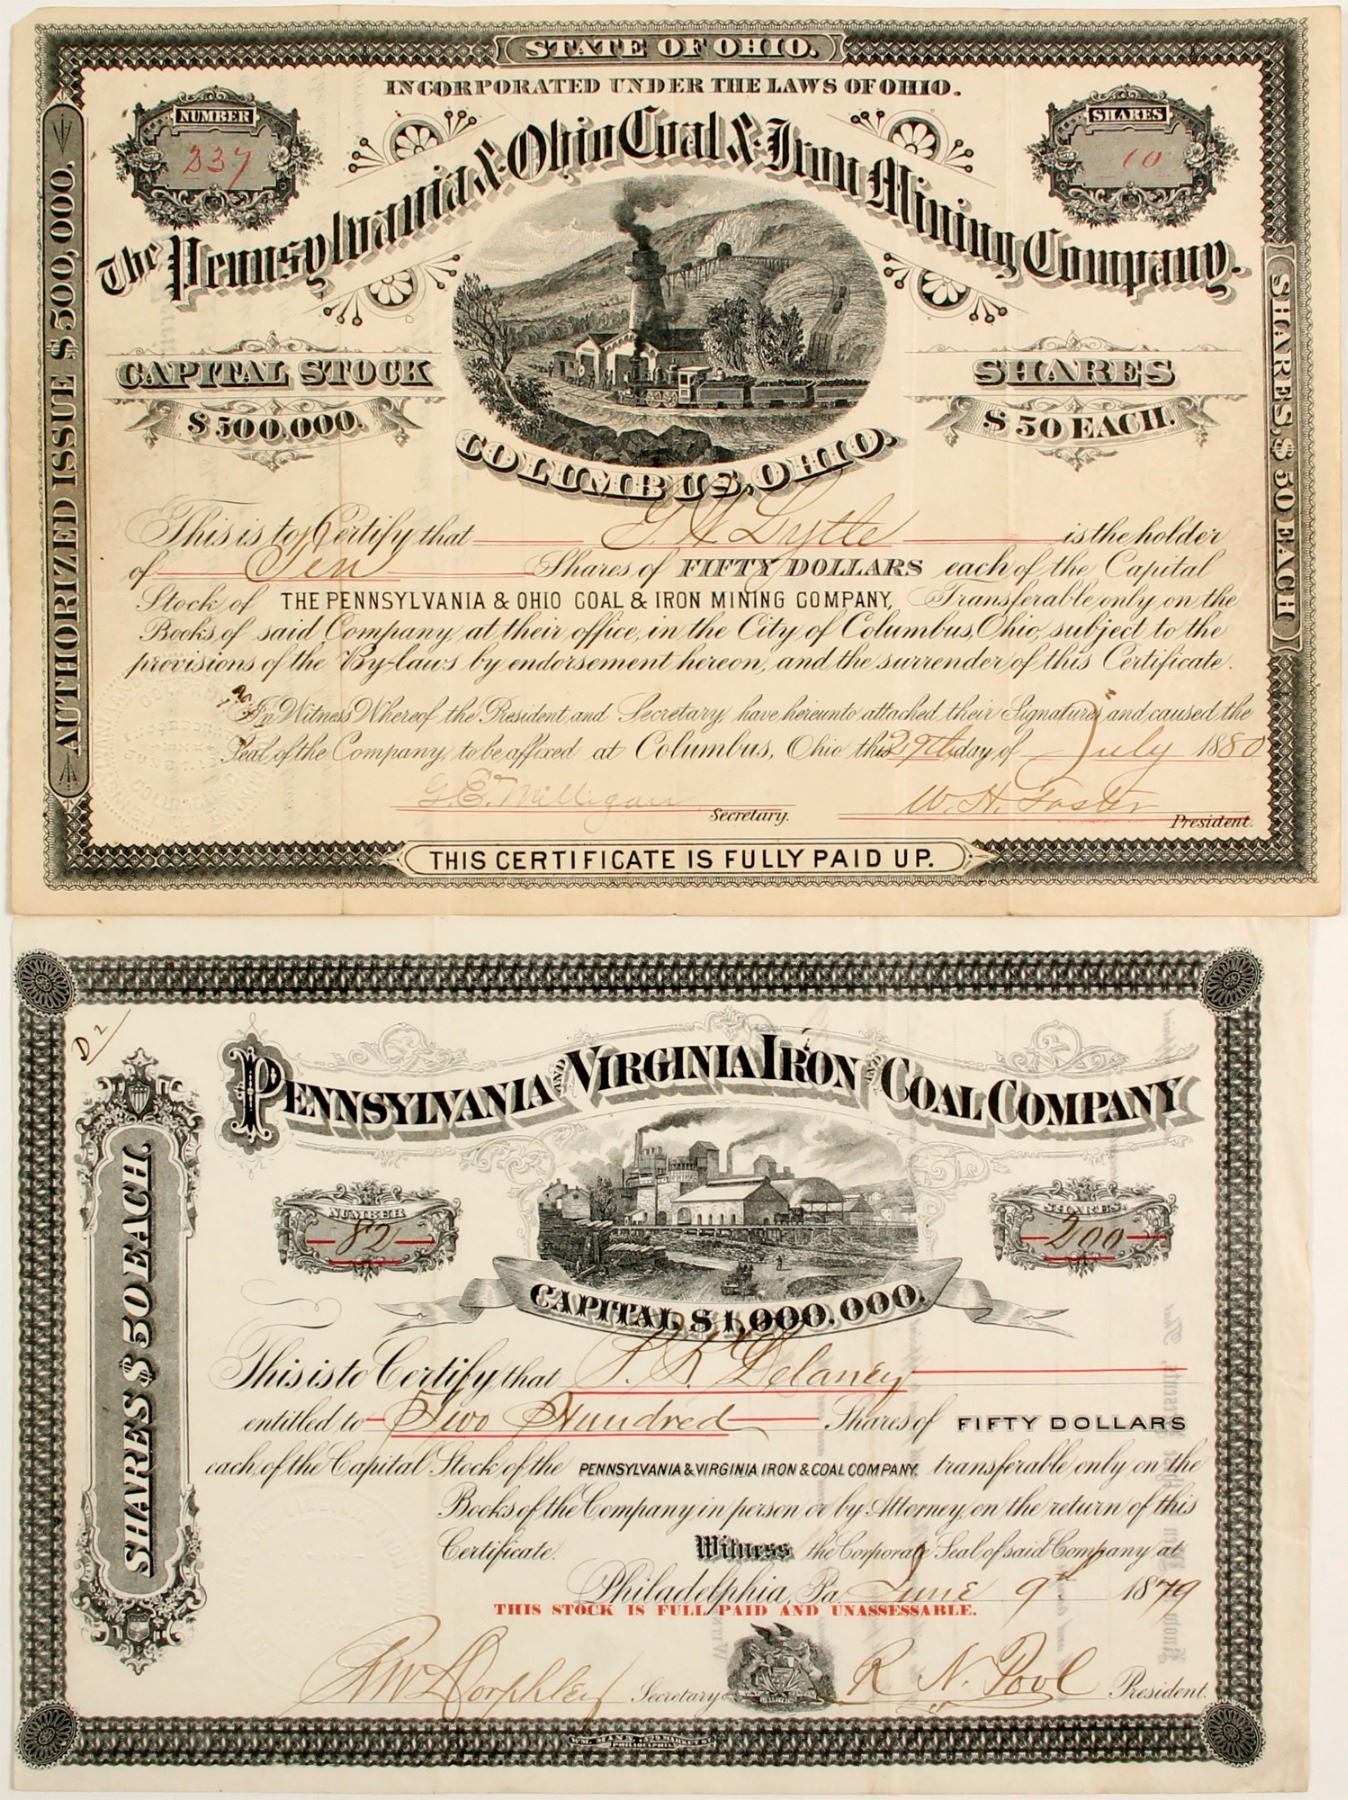 STATE OF OHIO.
INCORPORATED UNDER THE LAWS OF OHIO.
NUMBER
337
SHARES
10
The Pennsylvania & Ohio Coal & Iron Mining Company.
AUTHORIZED ISSUE $500,000.
SHARES, $50 EACH
CAPITAL STOCK
$500,000.
SHARES
$50 EACH.
COLUMBUS, OHIO.
This is to Certify that G. A. Lytle is the holder
of Ten Shares of FIFTY DOLLARS each of the Capital
Stock of THE PENNSYLVANIA & OHIO COAL & IRON MINING COMPANY, Transferable only on the
Books of said Company at their office, in the City of Columbus, Ohio, subject to the
provisions of the By-laws by endorsement hereon, and the surrender of this Certificate.
In Witness Whereof the President and Secretary have hereunto attached their Signatures and caused the
Seal of the Company to be affixed at Columbus, Ohio this 29th day of July 1880
G. E. Milligan Secretary.
W. H. Foster President.
THIS CERTIFICATE IS FULLY PAID UP.
D 2
PENNSYLVANIA AND VIRGINIA IRON AND COAL COMPANY
NUMBER
82
SHARES.
200
SHARES $50 EACH.
CAPITAL $1,000,000.
This is to Certify that Delaney
entitled to Two Hundred Shares of FIFTY DOLLARS
each, of the Capital Stock of the PENNSYLVANIA & VIRGINIA IRON & COAL COMPANY. transferable only on the
Books of the Company in person or by Attorney, on the return of this
Certificate. Witness, the Corporate Seal of said Company at
Philadelphia, Pa. June 9th 1879
THIS STOCK IS FULL PAID AND UNASSESSABLE.
Secretary
R. N. Pool President.
WM. MANN MARKET ST
PHILADELPHIA